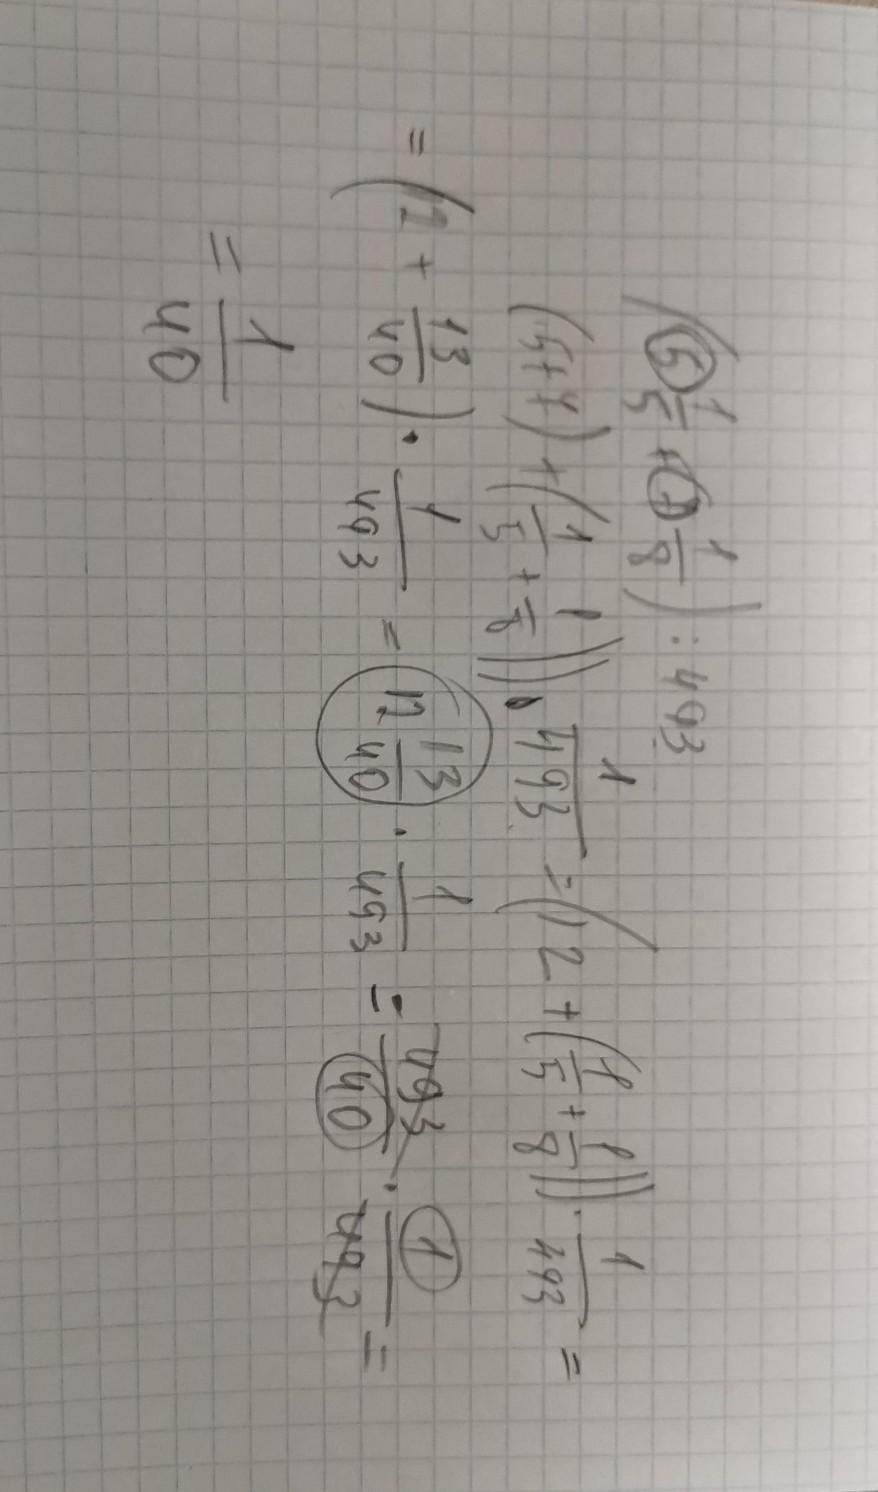 (5 1/5 + 7 1/8) : 493
(5+7) + (1/5 + 1/8)) · 1/493 = (12 + (1/5 + 1/8)) · 1/493 =
= (12 + 13/40) · 1/493 = 12 13/40 · 1/493 = 493/40 · 1/493 =
= 1/40